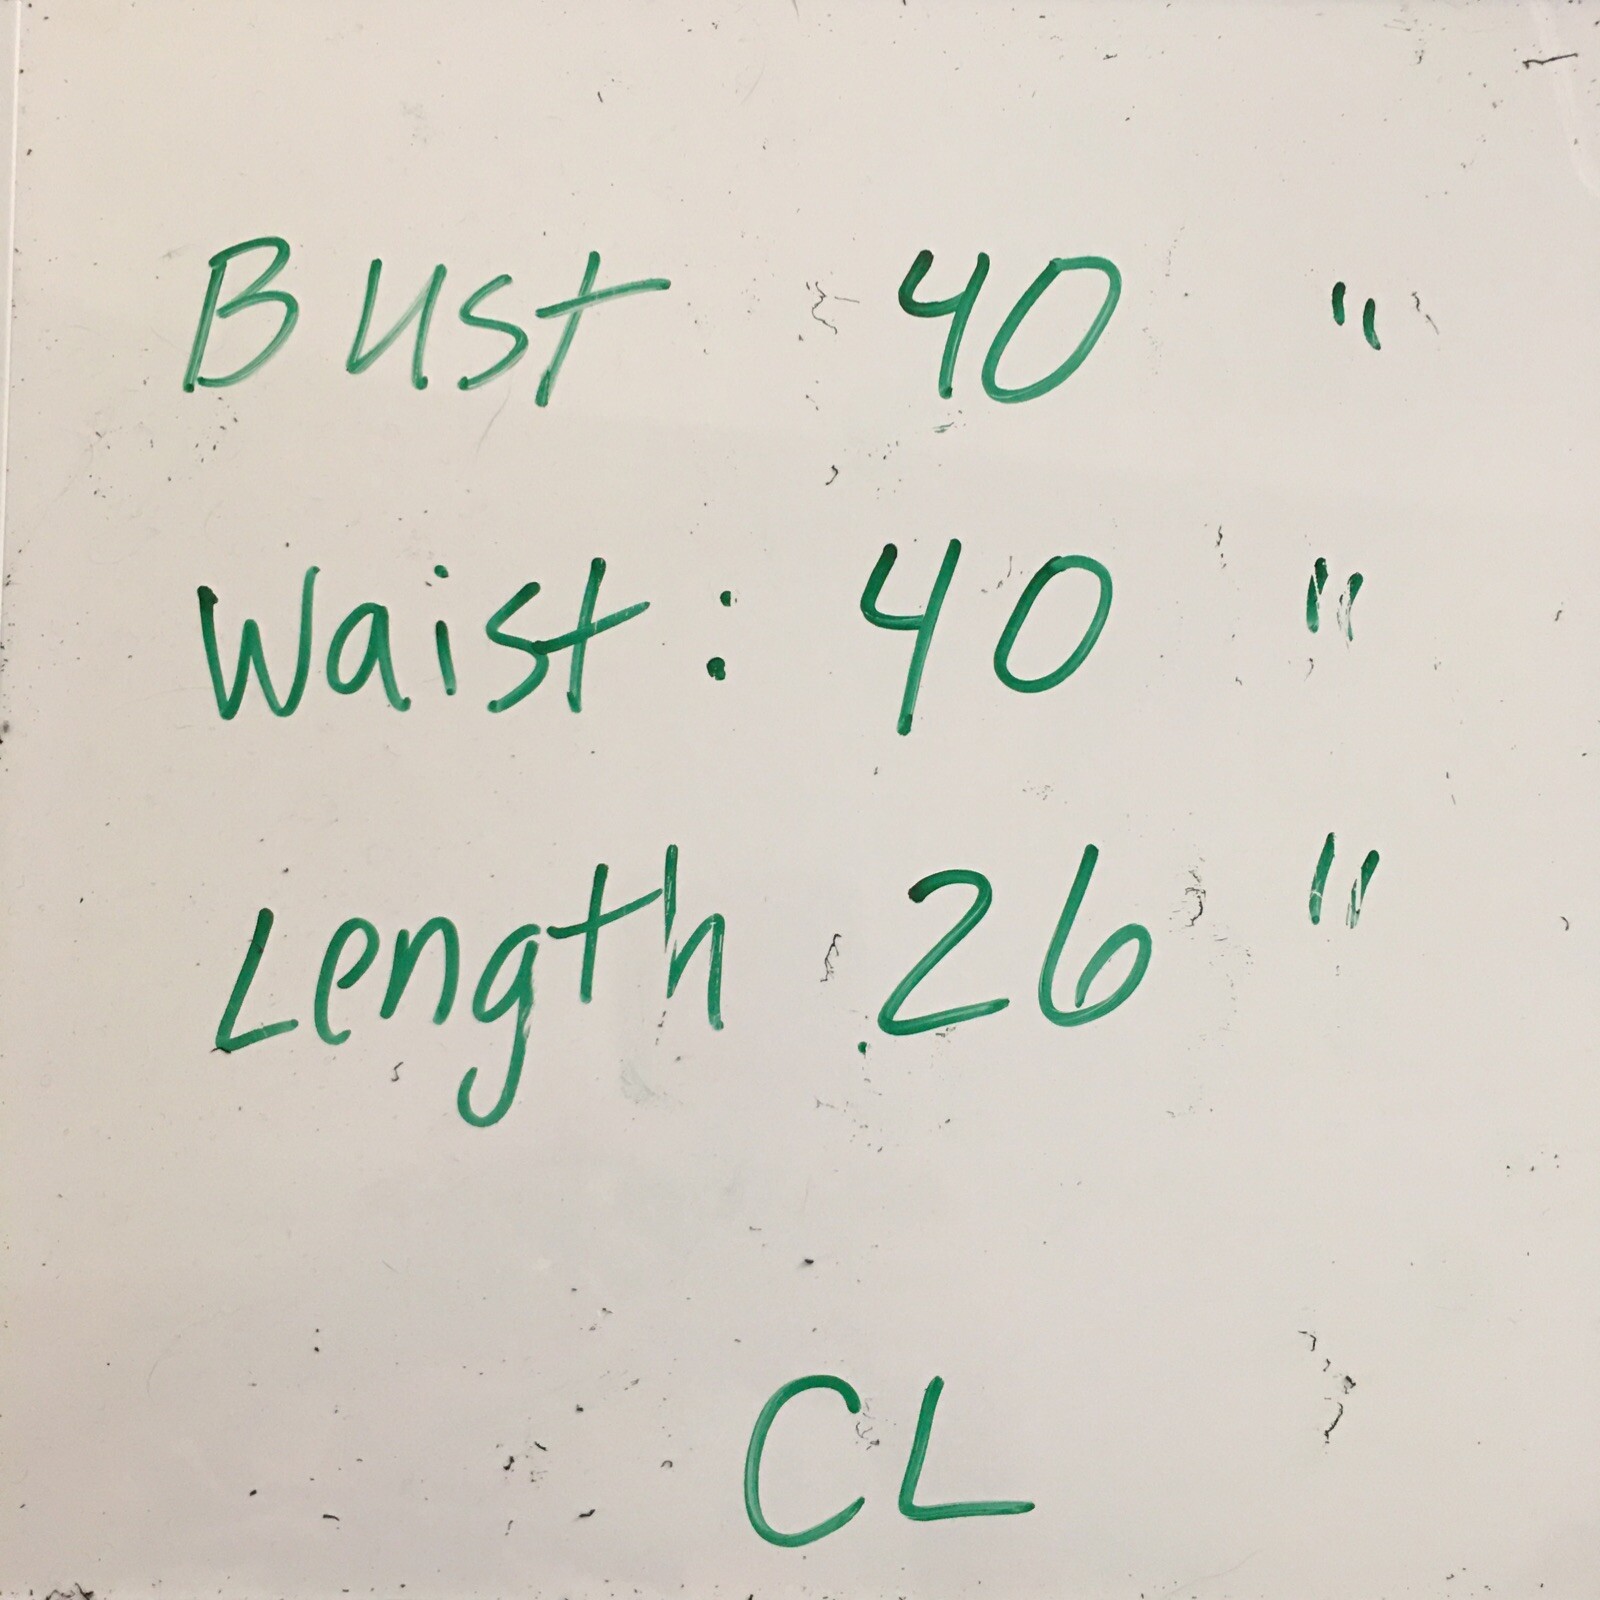 Bust 40 "
Waist: 40 "
Length 26 "
CL